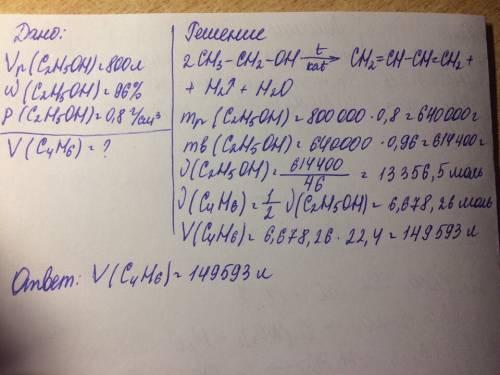 Дано:
Vр(C2H5OH)=800л
ω(C2H5OH)=96%
ρ(C2H5OH)=0,8 г/см³
V(C4H6)=?
Решение
2CH3-CH2-OH t/kat → CH2=CH-CH=CH2+
+ H2↑ + H2O
mр(C2H5OH)=800 000·0,8=640000г
mв(C2H5OH)=640000·0,96=614400г
ν(C2H5OH)=614400/46=13356,5моль
ν(C4H6)=1/2 ν(C2H5OH)=6,678,26моль
V(C4H6)=6,678,26·22,4=149593л
Ответ: V(C4H6)=149593л